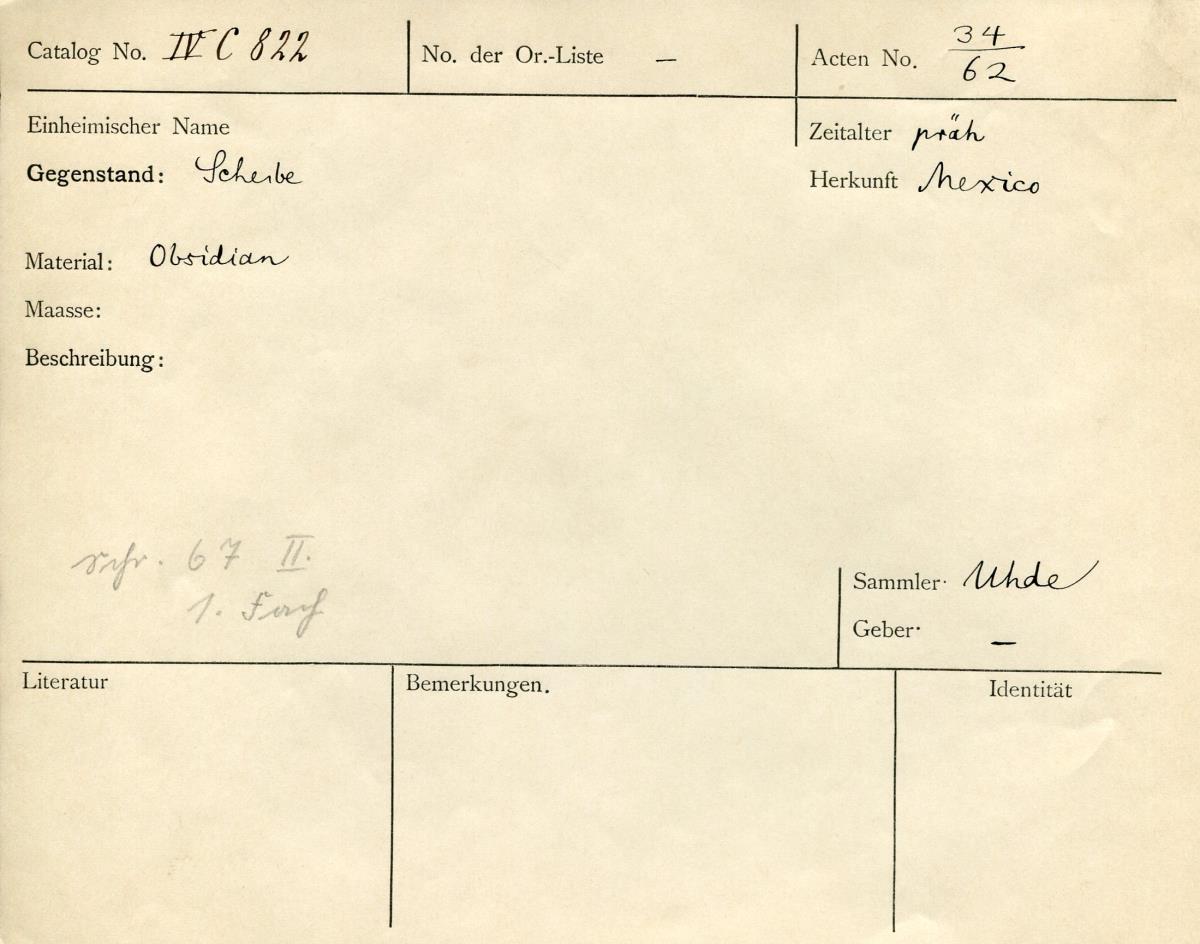 Catalog No. IV C 822 No. der Or.-Liste — Acten No. 34/62
Einheimischer Name Zeitalter präh
Gegenstand: Scheibe Herkunft Mexico
Material: Obsidian
Maasse:
Beschreibung:
schr. 67 II.
1. Fach
Sammler. Uhde
Geber. —
Literatur Bemerkungen. Identität